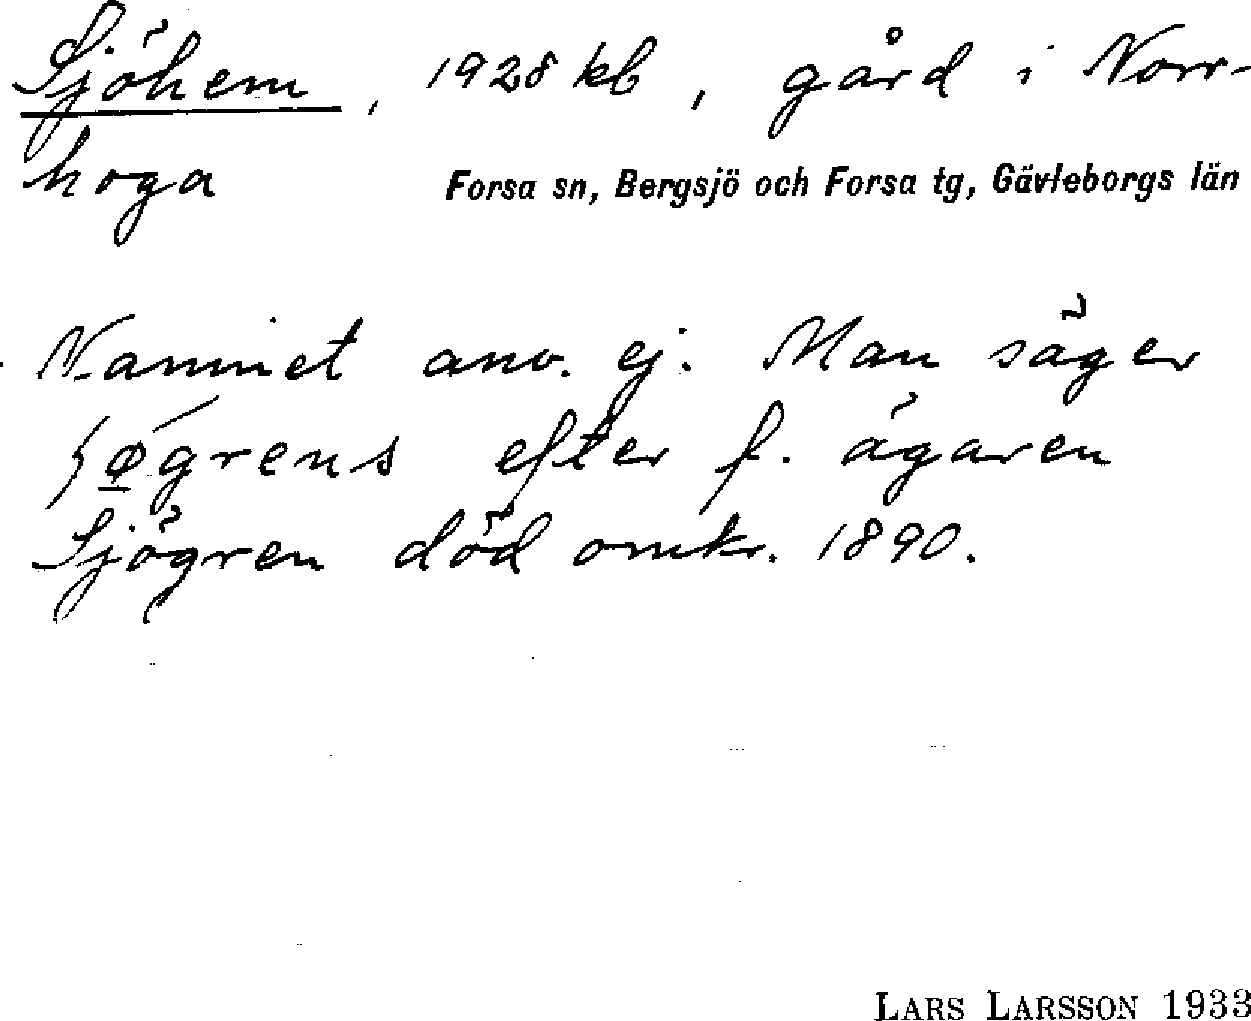 Sjöhem, 1928 kb, gård i Norr-
hoga Forsa sn, Bergsjö och Forsa tg, Gävleborgs län
Namnet anv. ej. Man säger
efter f. ägaren
Sjögren död omkr. 1890.
LARS LARSSON 1933